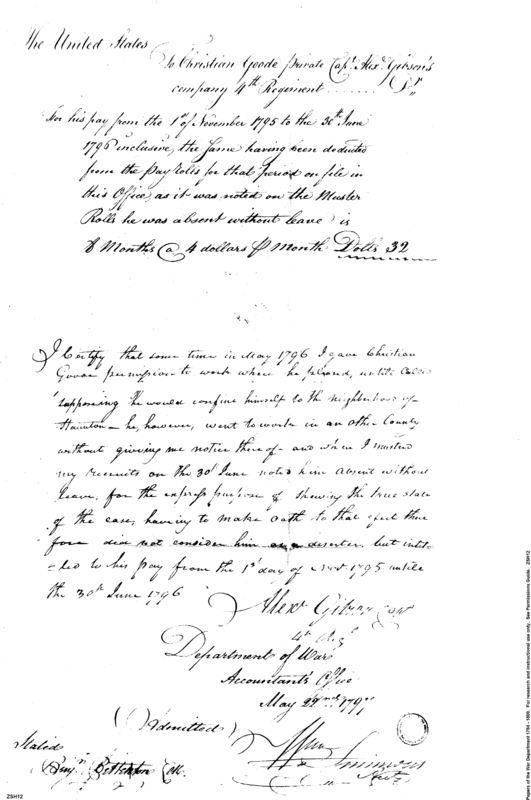 The United States
To Christian Goode private Capt. Alexr. Gibson's
company 4th Regiment ....... Dr
For his pay from the 1st of November 1795 to the 30th June
1796 inclusive, the same having been deducted
from the Pay rolls for that period on file in
this Office, as it was noted on the Muster
Rolls he was absent without leave is
8 Months @ 4 dollars P Month Dolls 32
I Certify that some time in May 1796 I gave Christian
Goode permission to work where he pleased, until Called
supposing he would confine himself to the neighborhood of
Staunton - he, however, went to work in an other County
without giving me notice thereof - and when I mustered
my recruits on the 30th June noted him absent without
leave, for the express purpose of shewing the true state
of the case, having to make oath to that effect there
fore did not consider him as a deserter but intit-
-led to his pay from the 1st day of Novr. 1795 untill
the 30th June 1796
Alexr. Gibson Capt
4th Regt
Department of War
Accountant's Office
May 22nd 1797
(Admitted)
Wm Simmons
Stated
Benj.
Clk.
ZSH12
Papers of the War Department 1784 - 1800. For research and instructional use only. See Permissions Guide. ZSH12